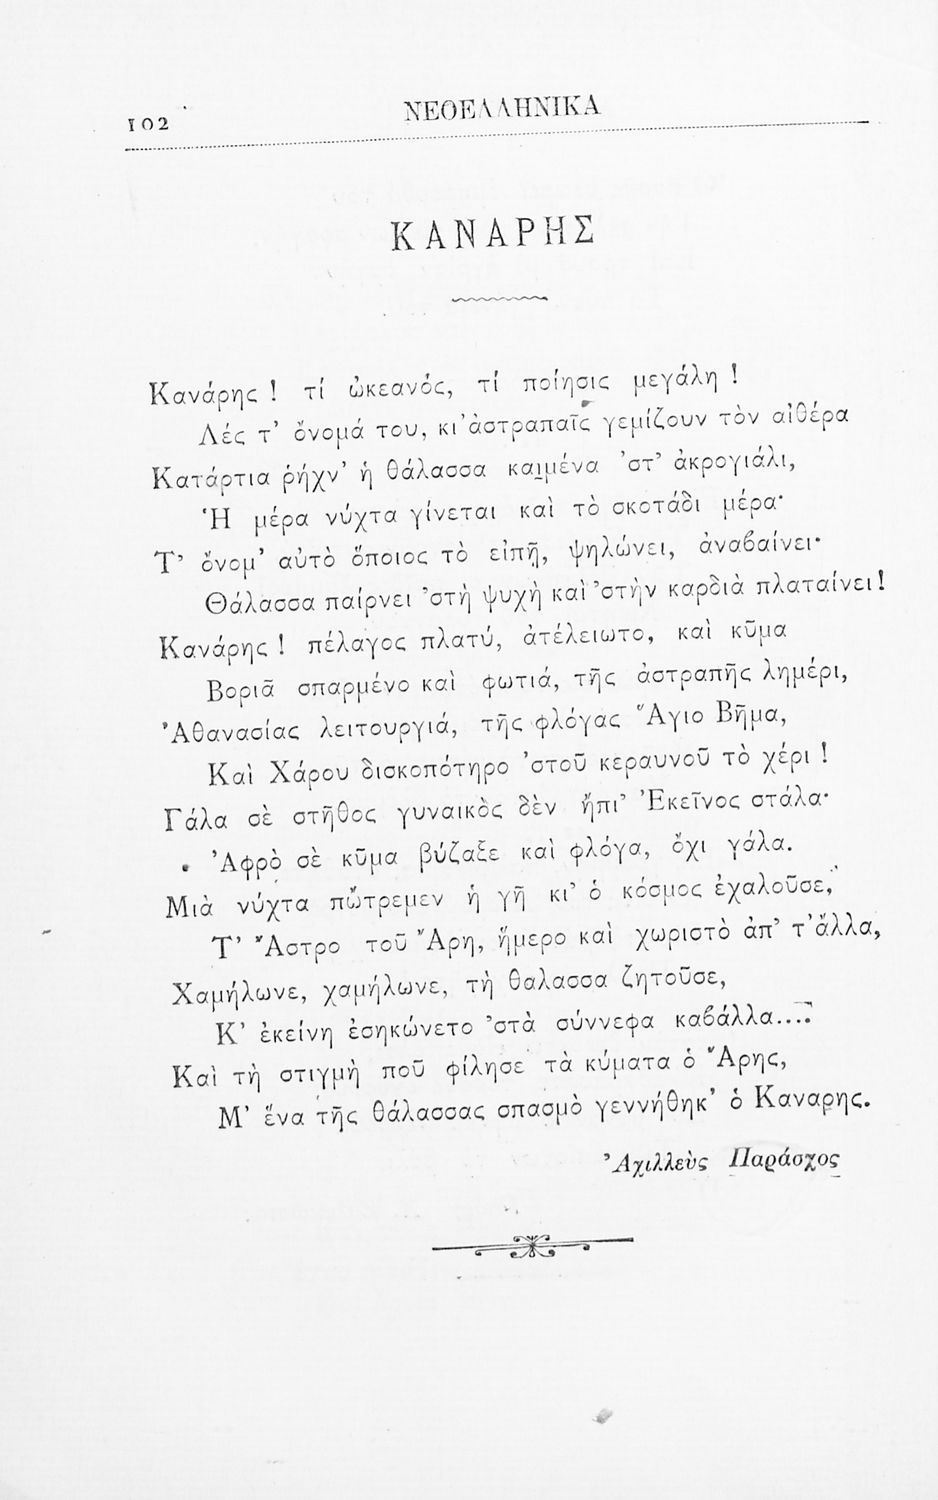 102
ΝΕΟΕΛΛΗΝΙΚΑ
ΚΑΝΑΡΗΣ
Κανάρης ! τί ὠκεανός, τί ποίησις μεγάλη !
Λές τ’ ὄνομά του, κι’ ἀστραπαῖς γεμίζουν τὸν αἰθέρα
Κατάρτια ῥήχν’ ἡ θάλασσα καϊμένα ’στ’ ἀκρογιάλι,
Ἡ μέρα νύχτα γίνεται καὶ τὸ σκοτάδι μέρα·
Τ’ ὄνομ’ αὐτὸ ὅποιος τὸ εἰπῇ, ψηλώνει, ἀναβαίνει·
Θάλασσα παίρνει ’στὴ ψυχὴ καὶ ’στὴν καρδιὰ πλαταίνει !
Κανάρης ! πέλαγος πλατύ, ἀτέλειωτο, καὶ κῦμα
Βοριᾶ σπαρμένο καὶ φωτιά, τῆς ἀστραπῆς λημέρι,
Ἀθανασίας λειτουργιά, τῆς φλόγας Ἅγιο Βῆμα,
Καὶ Χάρου δισκοπότηρο ’στοῦ κεραυνοῦ τὸ χέρι !
Γάλα σὲ στῆθος γυναικὸς δὲν ἤπι’ Ἐκεῖνος στάλα·
Ἀφρὸ σὲ κῦμα βύζαξε καὶ φλόγα, ὄχι γάλα.
Μιὰ νύχτα πὤτρεμεν ἡ γῆ κι’ ὁ κόσμος ἐχαλοῦσε,
Τ’ Ἄστρο τοῦ Ἄρη, ἥμερο καὶ χωριστὸ ἀπ’ τ’ ἄλλα,
Χαμήλωνε, χαμήλωνε, τὴ θαλασσα ζητοῦσε,
Κ’ ἐκείνη ἐσηκώνετο ’στὰ σύννεφα καβάλλα....
Καὶ τὴ στιγμὴ ποῦ φίλησε τὰ κύματα ὁ Ἄρης,
Μ’ ἕνα τῆς θάλασσας σπασμὸ γεννήθηκ’ ὁ Καναρης.
Ἀχιλλεὺς Παράσχος